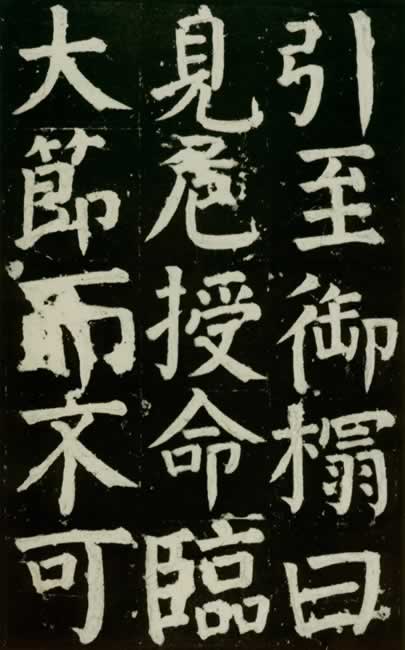 引至御榻曰
見危授命臨
大節而不可